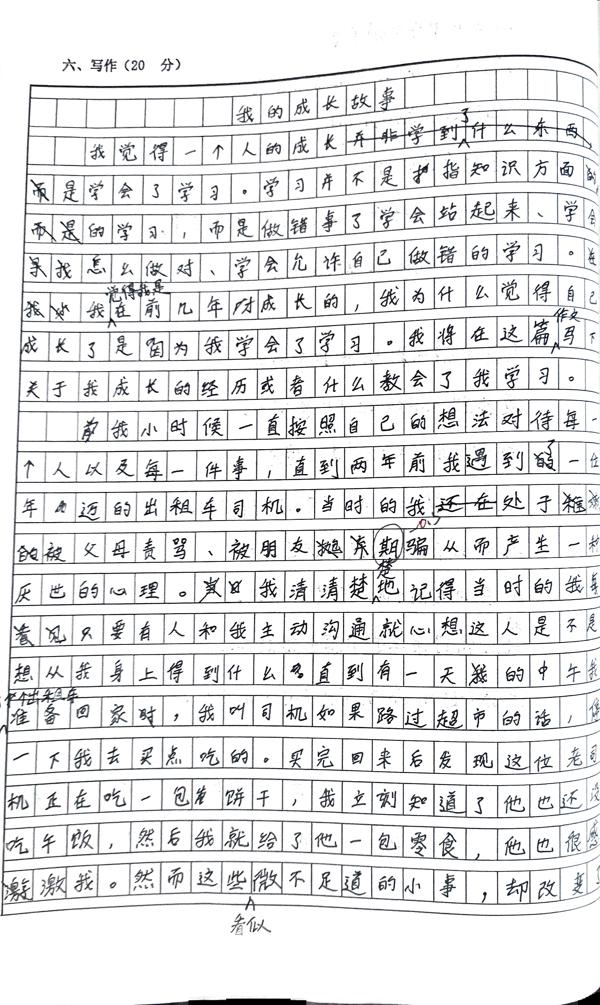 六、写作（20 分）
我的成长故事
我觉得一个人的成长并非学到了什么东西,
而是学会了学习。学习并不是指知识方面的
而是的学习，而是做错事了学会站起来、学会
寻找怎么做对、学会允许自己做错的学习。在
我我觉得我是在前几年成长的，我为什么觉得自己
成长了是因为我学会了学习。我将在这篇作文写下
关于我成长的经历或者什么教会了我学习。
我小时候一直按照自己的想法对待每一
个人以及每一件事，直到两年前我遇到了一位
年迈的出租车司机。当时的我还在处于
被父母责骂、被朋友欺骗从而产生一种
厌世的心理。我清清楚楚地记得当时的我每
看见只要有人和我主动沟通就心想这人是不是
想从我身上得到什么。直到有一天的中午我
坐出租车准备回家时，我叫司机如果路过超市的话，停
一下我去买点吃的。买完回来后发现这位老司
机正在吃一包饼干，我立刻知道了他也还没
吃午饭，然后我就给了他一包零食，他也很感
激我。然而这些看似微不足道的小事，却改变了